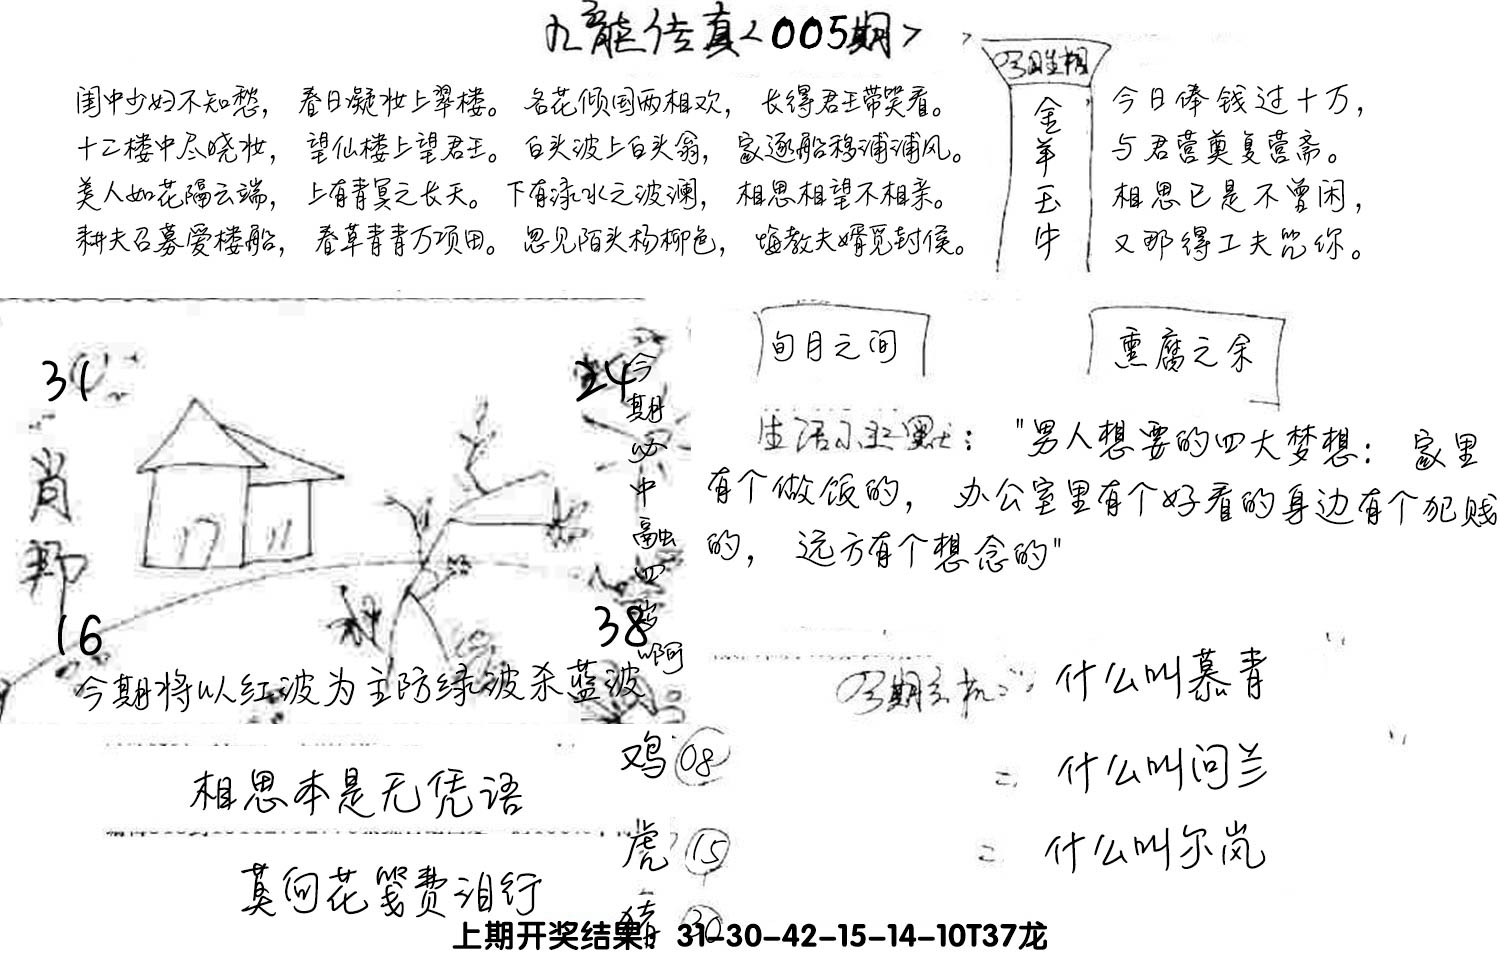 九龍传真<005期>
闺中少妇不知愁，春日凝妆上翠楼。名花倾国两相欢，长得君王带笑看。
十二楼中尽晓妆，望仙楼上望君王。白头波上白头翁，家逐船移浦浦风。
美人如花隔云端，上有青冥之长天。下有渌水之波澜，相思相望不相亲。
耕夫召募爱楼船，春草青青万项田。忽见陌头杨柳色，悔教夫婿觅封侯。
金羊玉牛
今日俸钱过十万，
与君营奠复营斋。
相思已是不曾闲，
又那得工夫咒你。
旬月之间
熏腐之余
31
24
肖
16
38
今期必中融四岁啊
今期将以红波为主防绿波杀蓝波
"男人想要的四大梦想：家里
有个做饭的，办公室里有个好看的身边有个犯贱
的，远方有个想念的"
什么叫慕青
什么叫问兰
什么叫尔岚
相思本是无凭语
莫向花笺费泪行
鸡 08
虎 15
猪 30
上期开奖结果：31-30-42-15-14-10T37龙